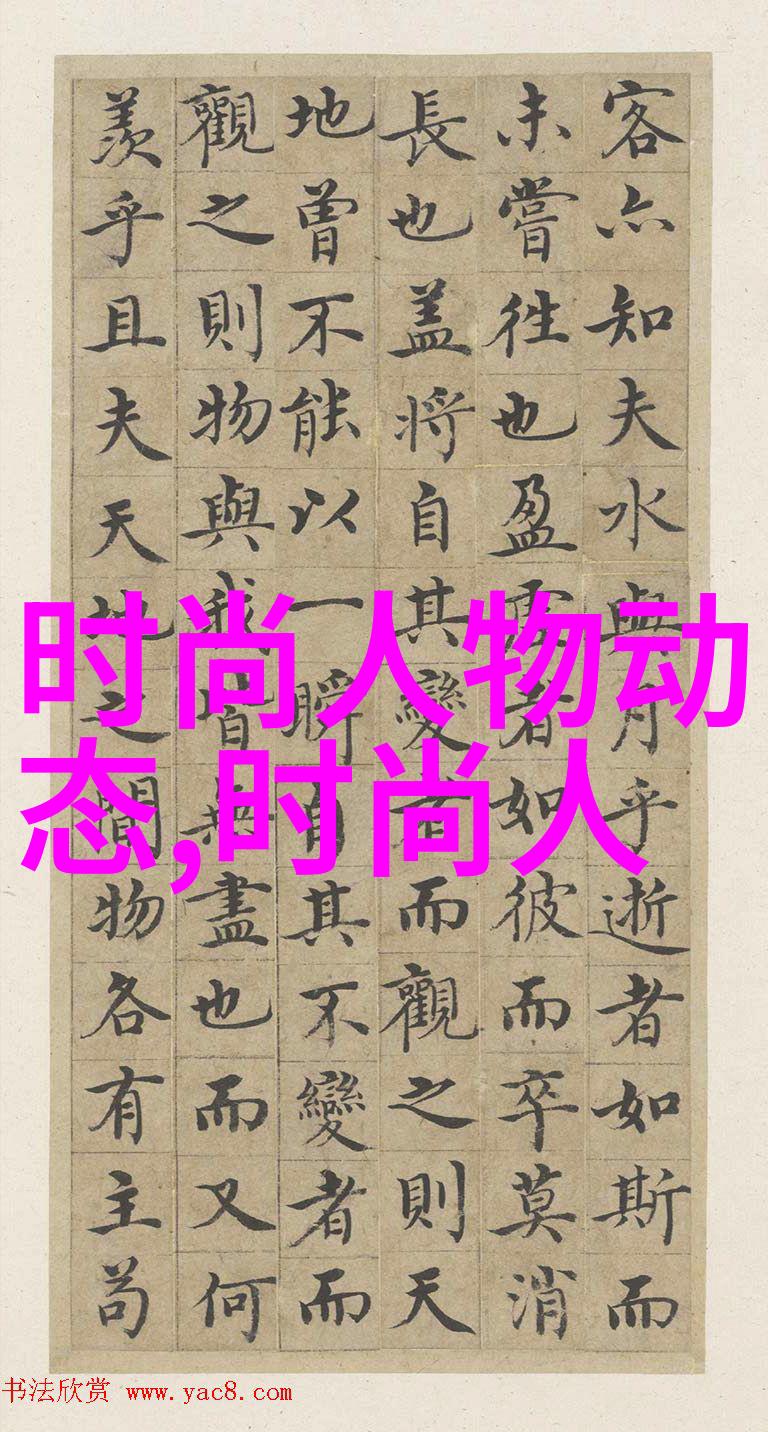 客亦知夫水與月乎逝者如斯而
未嘗往也盈虛者如彼而卒莫消
長也盖將自其變者而觀之則天
地曾不能以一瞬自其不變者而
觀之則物與我皆無盡也而又何
羨乎且夫天地之間物各有主苟
时尚人物动
态,时尚人
书法欣赏 www.yac8.com